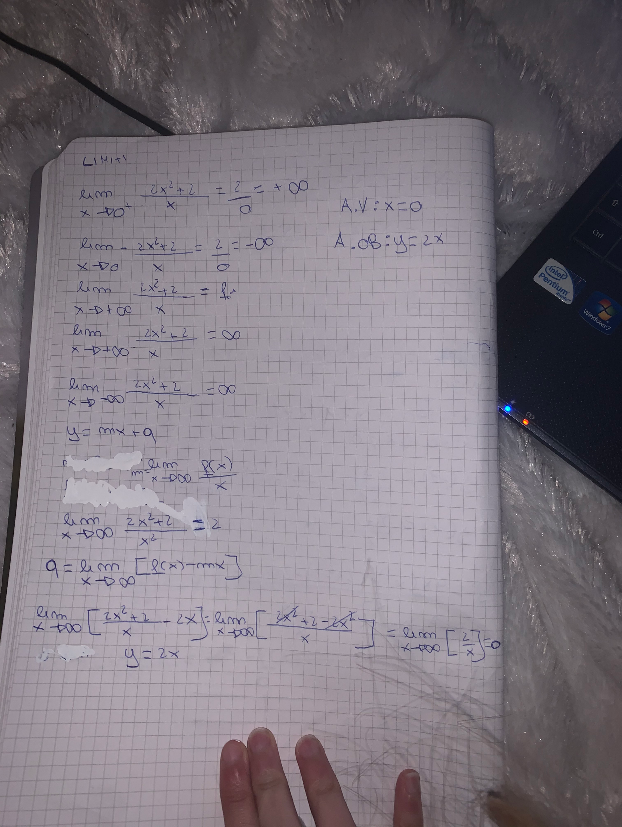 LIMITI
lim x→0⁺ (2x²+2)/x = 2/0 = +∞
A.V: x=0
lim x→0 - (2x²+2)/x = 2/0 = -∞
A.OB: y=2x
lim x→+∞ (2x²+2)/x =
lim x→+∞ (2x²+2)/x = ∞
lim x→-∞ (2x²+2)/x = ∞
y = mx + q
m= lim x→∞ f(x)/x
lim x→∞ (2x²+2)/x² = 2
q = lim x→∞ [f(x)-mx]
lim x→∞ [(2x²+2)/x - 2x] = lim x→∞ [(2x²+2-2x²)/x] = lim x→∞ [2/x] = 0
y = 2x
intel
Pentium
Windows 7